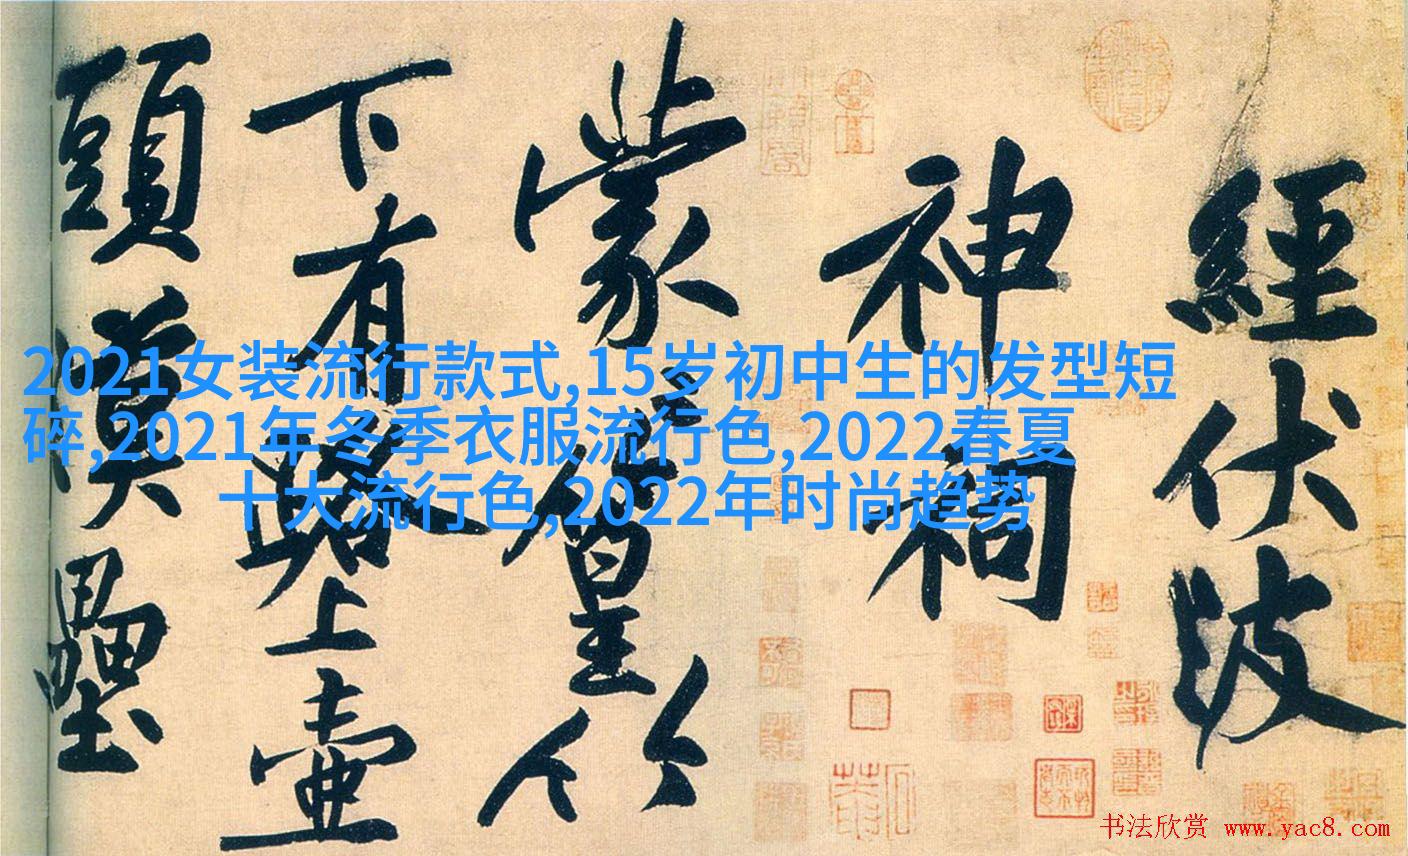 經伏波
神祠
蒙〻篁竹
下有路上壺
頭漢壘
2021女装流行款式,15岁初中生的发型短
碎,2021年冬季衣服流行色,2022春夏
十大流行色,2022年时尚趋势
书法欣赏 www.yac8.com